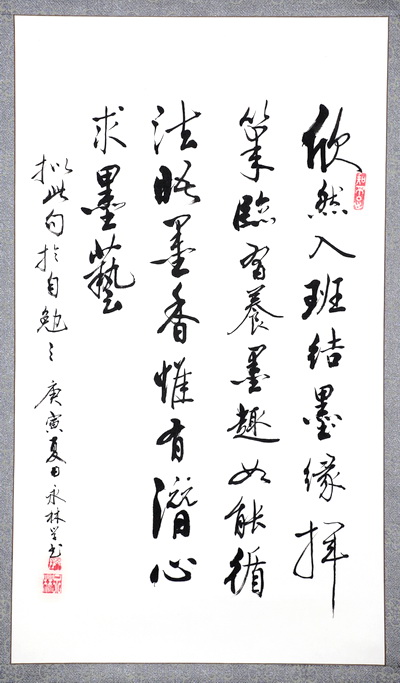 欣然入班结墨缘挥
筆臨習養墨趣如能循
法墨香惟有潛心
求墨藝
拟此句於自勉之
庚寅夏田永林学书
知不足